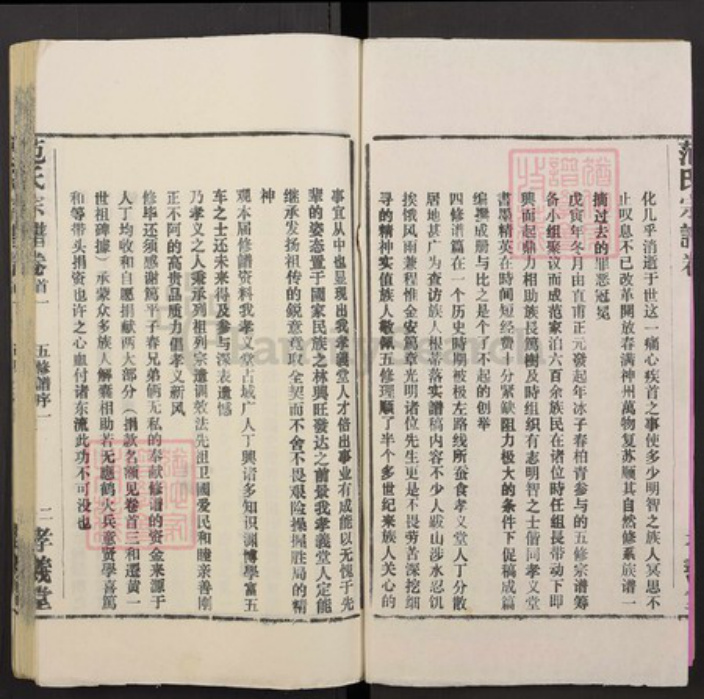 范氏宗譜卷
化几乎消逝于世这一痛心疾首之事使多少明智之族人冥思不
止叹息不已改革開放春满神州萬物复苏顺其自然修系族谱一
摘过去的罪恶冠冕
戊寅年冬月由直甫正元發起年冰子春柏青参与的五修宗譜筹
备小组聚议而成范家泊六百余族民在诸位時任组長带动下即
興而起鼎力相助族長篤樹及時组织有志明智之士偕同孝义堂
書墨精英在時间短经费十分紧缺阻力极大的条件下促稿成篇
编撰成册与比之是个了不起的创举
四修谱篇在一个历史時期被极左路线所蚕食孝义堂人丁分散
居地甚广为查访族人根蒂落实譜稿内容不少人跋山涉水忍饥
挨饿风雨兼程惟金安篤章光明诸位先生更是不畏劳苦深挖细
寻的精神实值族人敬佩五修理順了半个多世纪来族人关心的
事宜从中也显现出我孝義堂人才倍出事业有成能以无愧于先
輩的姿态置于國家民族之林興旺發达之前景我孝義堂人定能
继承发扬祖传的鋭意竟取全契而不舍不畏艰险操握胜局的精
神
观本届修譜资料我孝义堂占城广人丁興诸多知识渊博學富五
车之士还未来得及参与深表遗憾
乃孝义之人秉承列祖列宗遗训效法先祖卫國爱民和睦亲善刚
正不阿的高贵品质力倡孝义新风
修毕还须感谢篤平子春兄弟俩无私的奉献修谱的资金来源于
人丁均收和自愿捐献两大部分（捐款名额见卷首三和遷黄一
世祖碑據）承蒙众多族人解囊相助若无應鹤火兵意贤學喜篤
和等带头捐资也许之心血付诸东流此功不可没也
范氏宗譜卷首一
五修譜序一
二
孝義堂